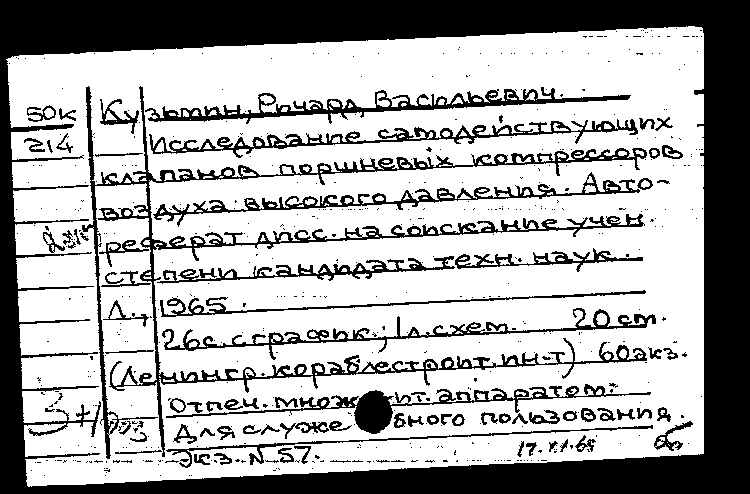 50к
214
Кузьмин, Ричард Васильевич.
Исследование самодействующих
клапанов поршневых компрессоров
воздуха высокого давления. Авто-
реферат дисс. на соискание учен.
степени кандидата техн. наук.
Л., 1965.
26с. с график.; 1 л. схем. 20 см.
(Ленингр. кораблестроит. ин-т) 60 экз.
Отпеч. множит. аппаратом.
Для служебного пользования.
Экз. N 57.